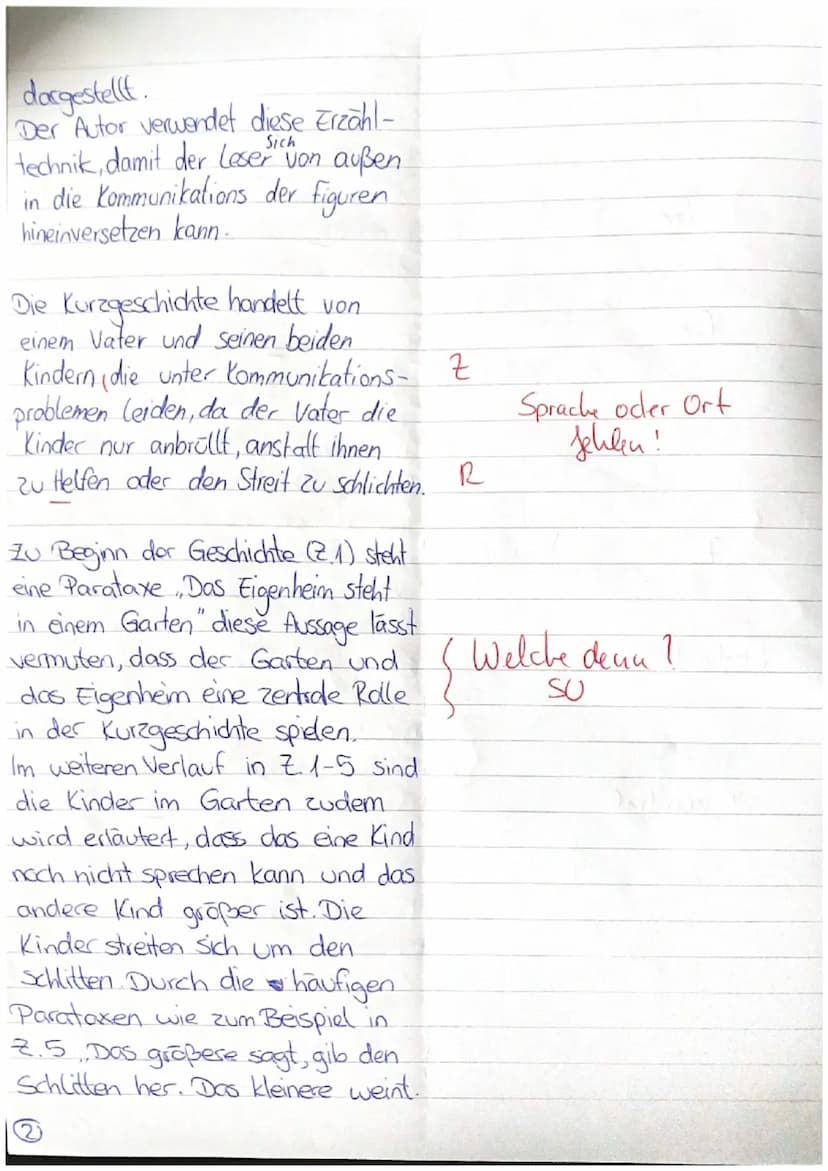 dargestellt.
Der Autor verwendet diese Erzähl-
technik, damit der Leser sich von außen
in die Kommunikations der Figuren
hineinversetzen kann.
Die Kurzgeschichte handelt von
einem Vater und seinen beiden
Kindern, die unter Kommunikations-
Z
problemen leiden, da der Vater die
Sprache oder Ort
Kinder nur anbrüllt, anstatt ihnen
fehlen!
zu Helfen oder den Streit zu schlichten.
R
Zu Beginn der Geschichte (Z.1) steht
eine Parataxe „Das Eigenheim steht
in einem Garten" diese Aussage lässt
vermuten, dass der Garten und
Welche denn?
das Eigenheim eine zentrale Rolle
SU
in der Kurzgeschichte spielen.
Im weiteren Verlauf in Z. 1-5 sind
die Kinder im Garten zudem
wird erläutert, dass das eine Kind
noch nicht sprechen kann und das
andere Kind größer ist. Die
Kinder streiten sich um den
Schlitten. Durch die häufigen
Parataxen wie zum Beispiel in
Z.5 „Das größere sagt, gib den
Schlitten her. Das kleinere weint.
2